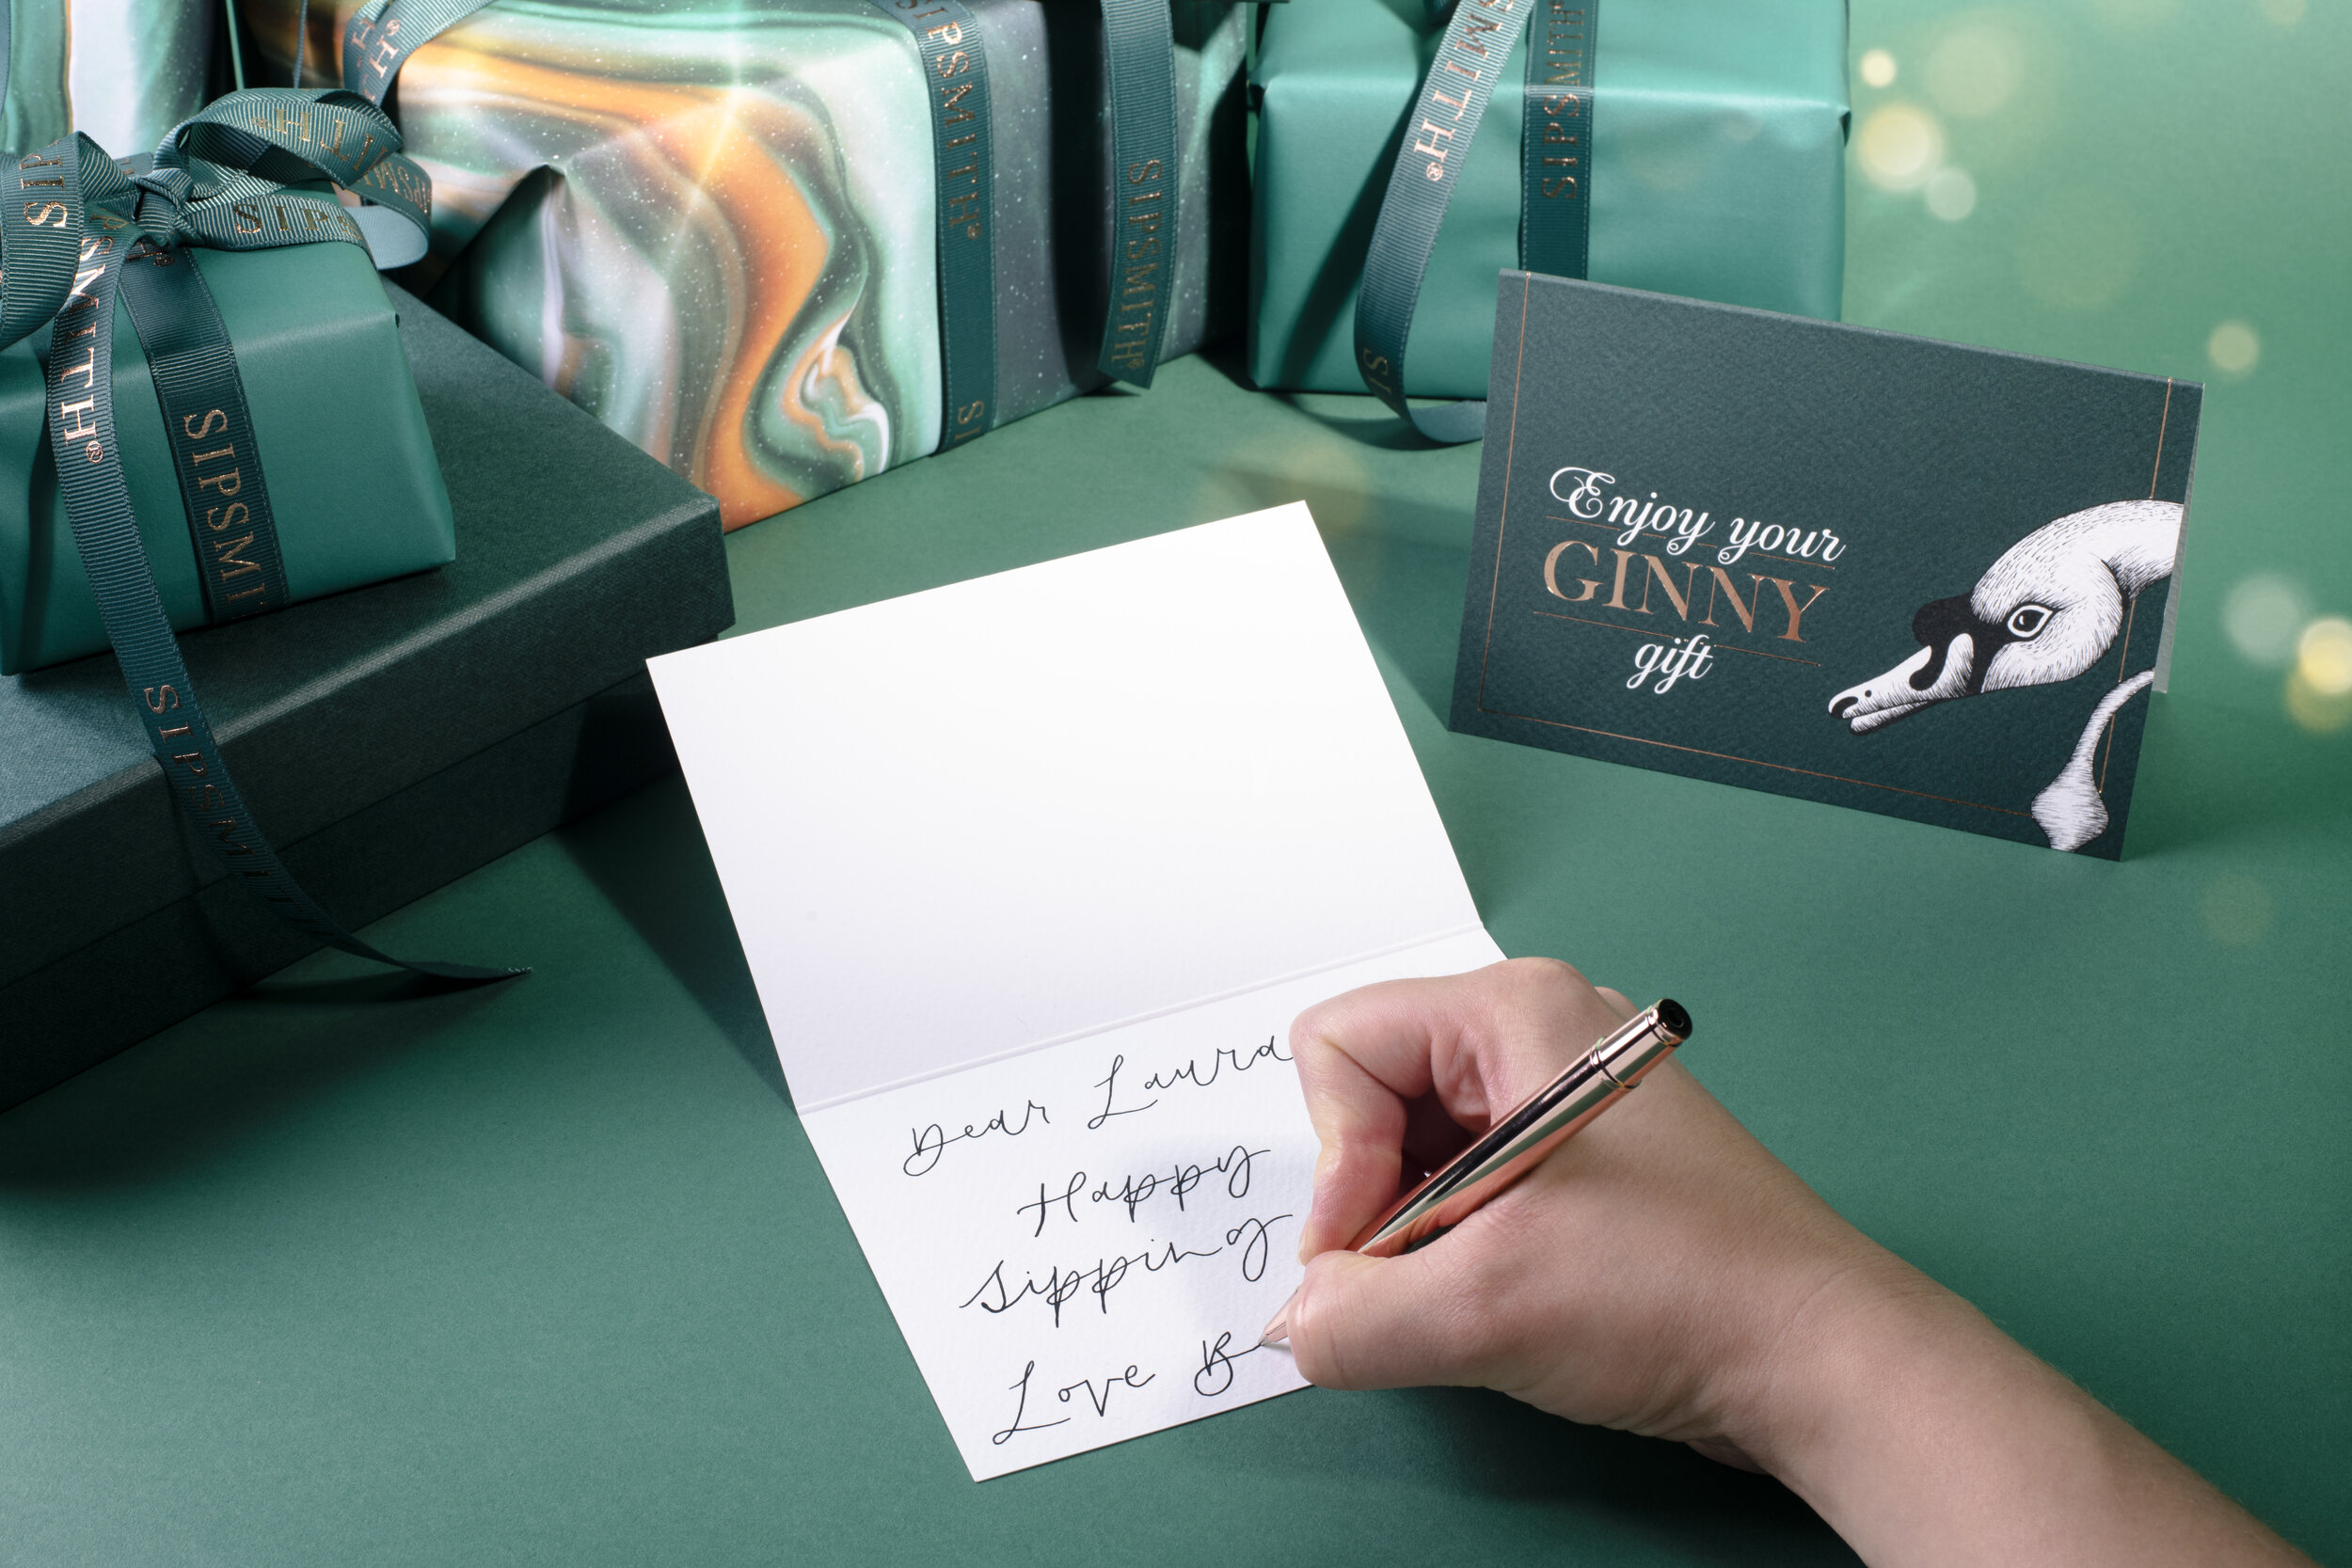 SIPSMITH®
SIPSMI
SIPSMITH
SIPSMITH®
SIPSMITH®
SMITH®
SIPSMITH
Enjoy your
GINNY
gift
Dear Laura
Happy
Sipping
Love B